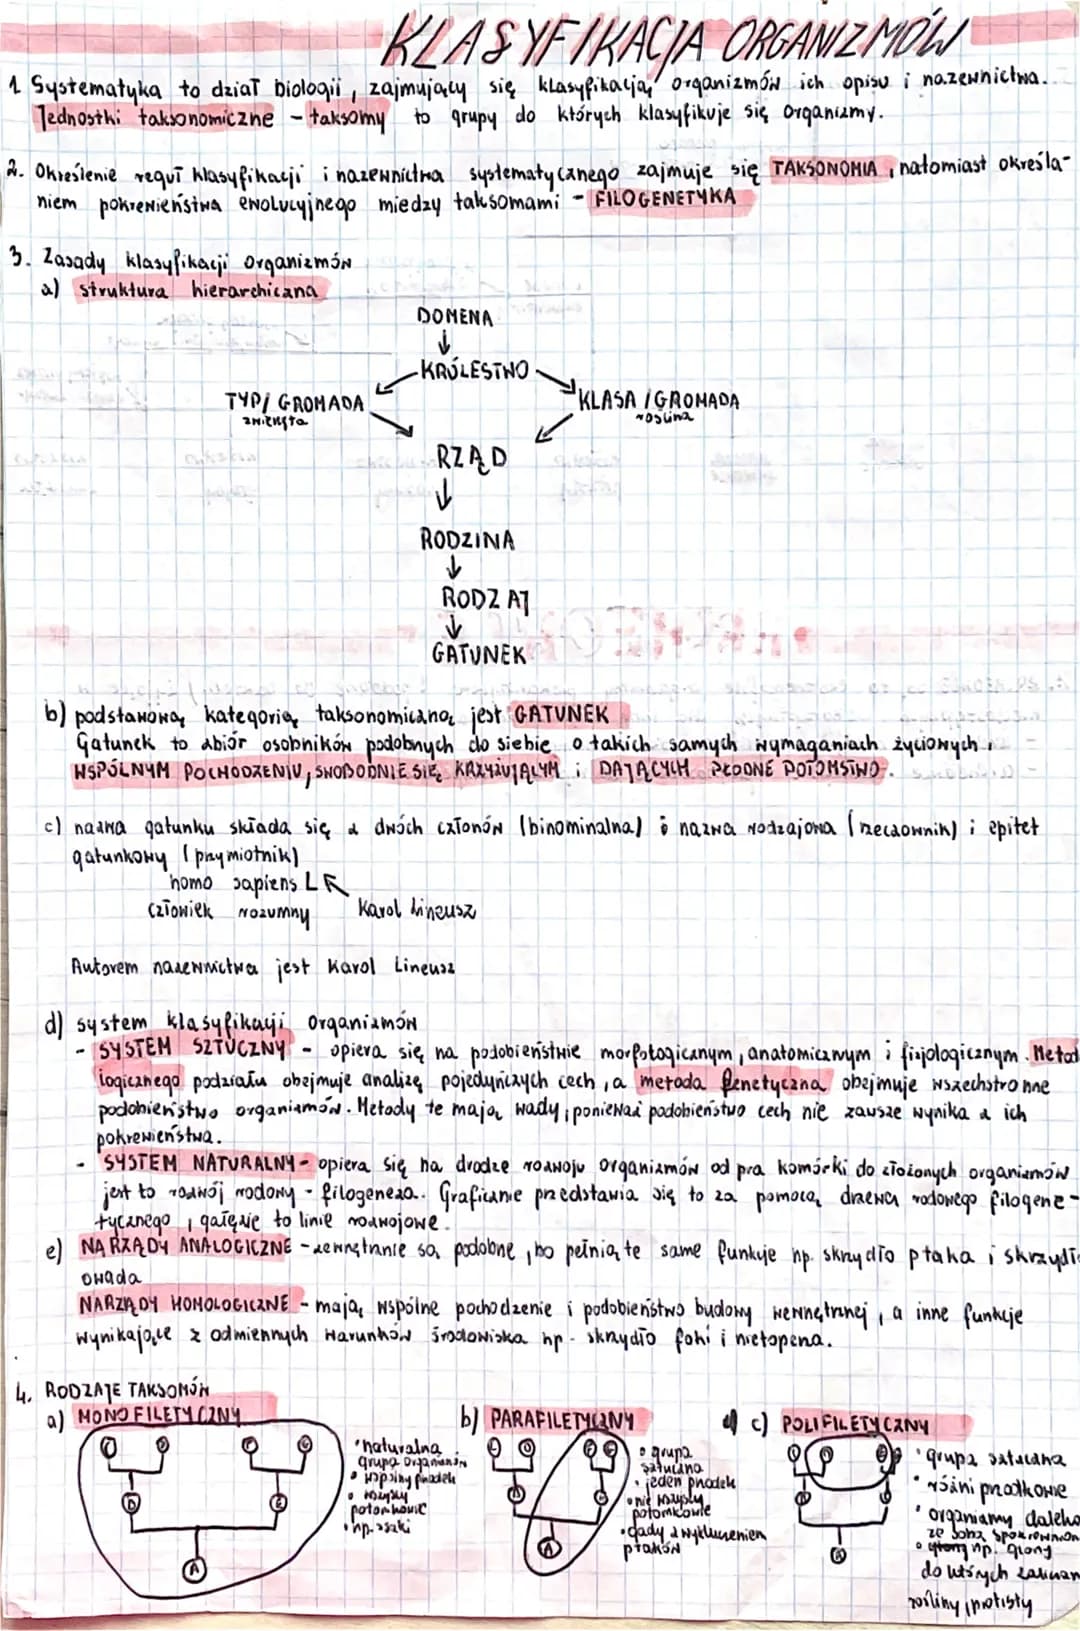 KLASYFIKACJA ORGANIZMÓW
1 Systematyka to dział biologii, zajmujący się klasyfikacją, organizmów ich opisu i nazewnictwa.
Jednostki taksonomiczne - taksomy to grupy do których klasyfikuje się organizmy.
2. Określenie reguł klasyfikacji i nazewnictwa systematycznego zajmuje się TAKSONOMIA, natomiast określa-
niem pokrewieństwa ewolucyjnego miedzy taksomami - FILOGENETYKA
3. Zasady klasyfikacji organizmów
a) struktura hierarchiczna
DOMENA
KRÓLESTWO
TYP/ GROMADA KLASA / GROMADA
zwierzęta roślina
RZĄD
RODZINA
RODZAJ
GATUNEK
b) podstawową kategorią taksonomiczną jest GATUNEK
Gatunek to zbiór osobników podobnych do siebie o takich samych wymaganiach życiowych,
WSPÓLNYM POCHODZENIU, SWOBODNIE SIĘ KRZYŻUJĄCYM i DAJĄCYCH PŁODNE POTOMSTWO.
c) nazwa gatunku składa się z dwóch członów (binominalna) : nazwa rodzajowa (rzeczownik) i epitet
gatunkowy (przymiotnik)
homo sapiens L
człowiek rozumny Karol Lineusz
Autorem nazewnictwa jest Karol Lineusz
d) system klasyfikacji organizmów
- SYSTEM SZTUCZNY - opiera się na podobieństwie morfologicznym, anatomicznym i fizjologicznym. Metod
logicznego podziału obejmuje analizę pojedyńczych cech, a metoda fenetyczna obejmuje wszechstronne
podobieństwo organizmów. Metody te mają wady, ponieważ podobieństwo cech nie zawsze wynika z ich
pokrewieństwa.
- SYSTEM NATURALNY - opiera się na drodze rozwoju organizmów od pra komórki do złożonych organizmów
jest to rozwój rodowy - filogeneza. Graficznie przedstawia się to za pomocą drzewa rodowego filogene-
tycznego, gałęzie to linie rozwojowe.
e) NARZĄDY ANALOGICZNE - zewnętrznie są podobne, bo pełnią te same funkcje np. skrzydło ptaka i skrzydło
owada
NARZĄDY HOMOLOGICZNE - mają wspólne pochodzenie i podobieństwo budowy wewnętrznej, a inne funkcje
wynikające z odmiennych warunków środowiska np - skrzydło foki i nietoperza.
4. RODZAJE TAKSOMÓW
a) MONOFILETYCZNY
• naturalna
grupa organizmów
• wspólny przodek
• wszyscy
potomkowie
• np. ssaki
A
b) PARAFILETYCZNY
• grupa
sztuczna
• jeden przodek
• nie wszyscy
potomkowie
• gady z wykluczeniem
ptaków
A
c) POLIFILETYCZNY
• grupa sztuczna
• różni przodkowie
• organizmy daleko
ze sobą spokrewnion
• np. glony
do których zaliczan
rośliny, protisty
A